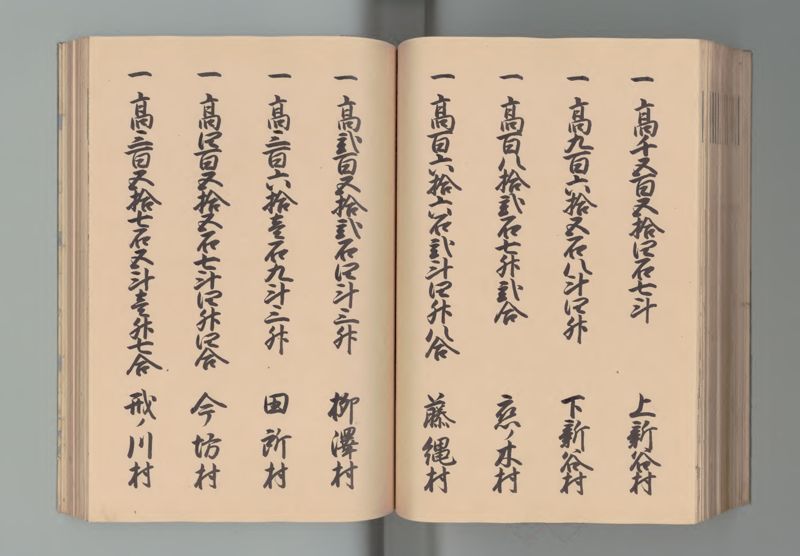 一 高千五百五拾四石七斗 上新谷村
一 高九百六拾五石八斗四升 下新谷村
一 高百八拾弐石七升弐合 恋ノ木村
一 高百六拾六石弐斗四升八合 藤縄村
一 高弐百五拾弐石四斗三升 柳澤村
一 高三百六拾壱石九斗三升 田所村
一 高四百五拾五石七斗四升四合 今坊村
一 高三百五拾七石五斗壱升七合 戒ノ川村